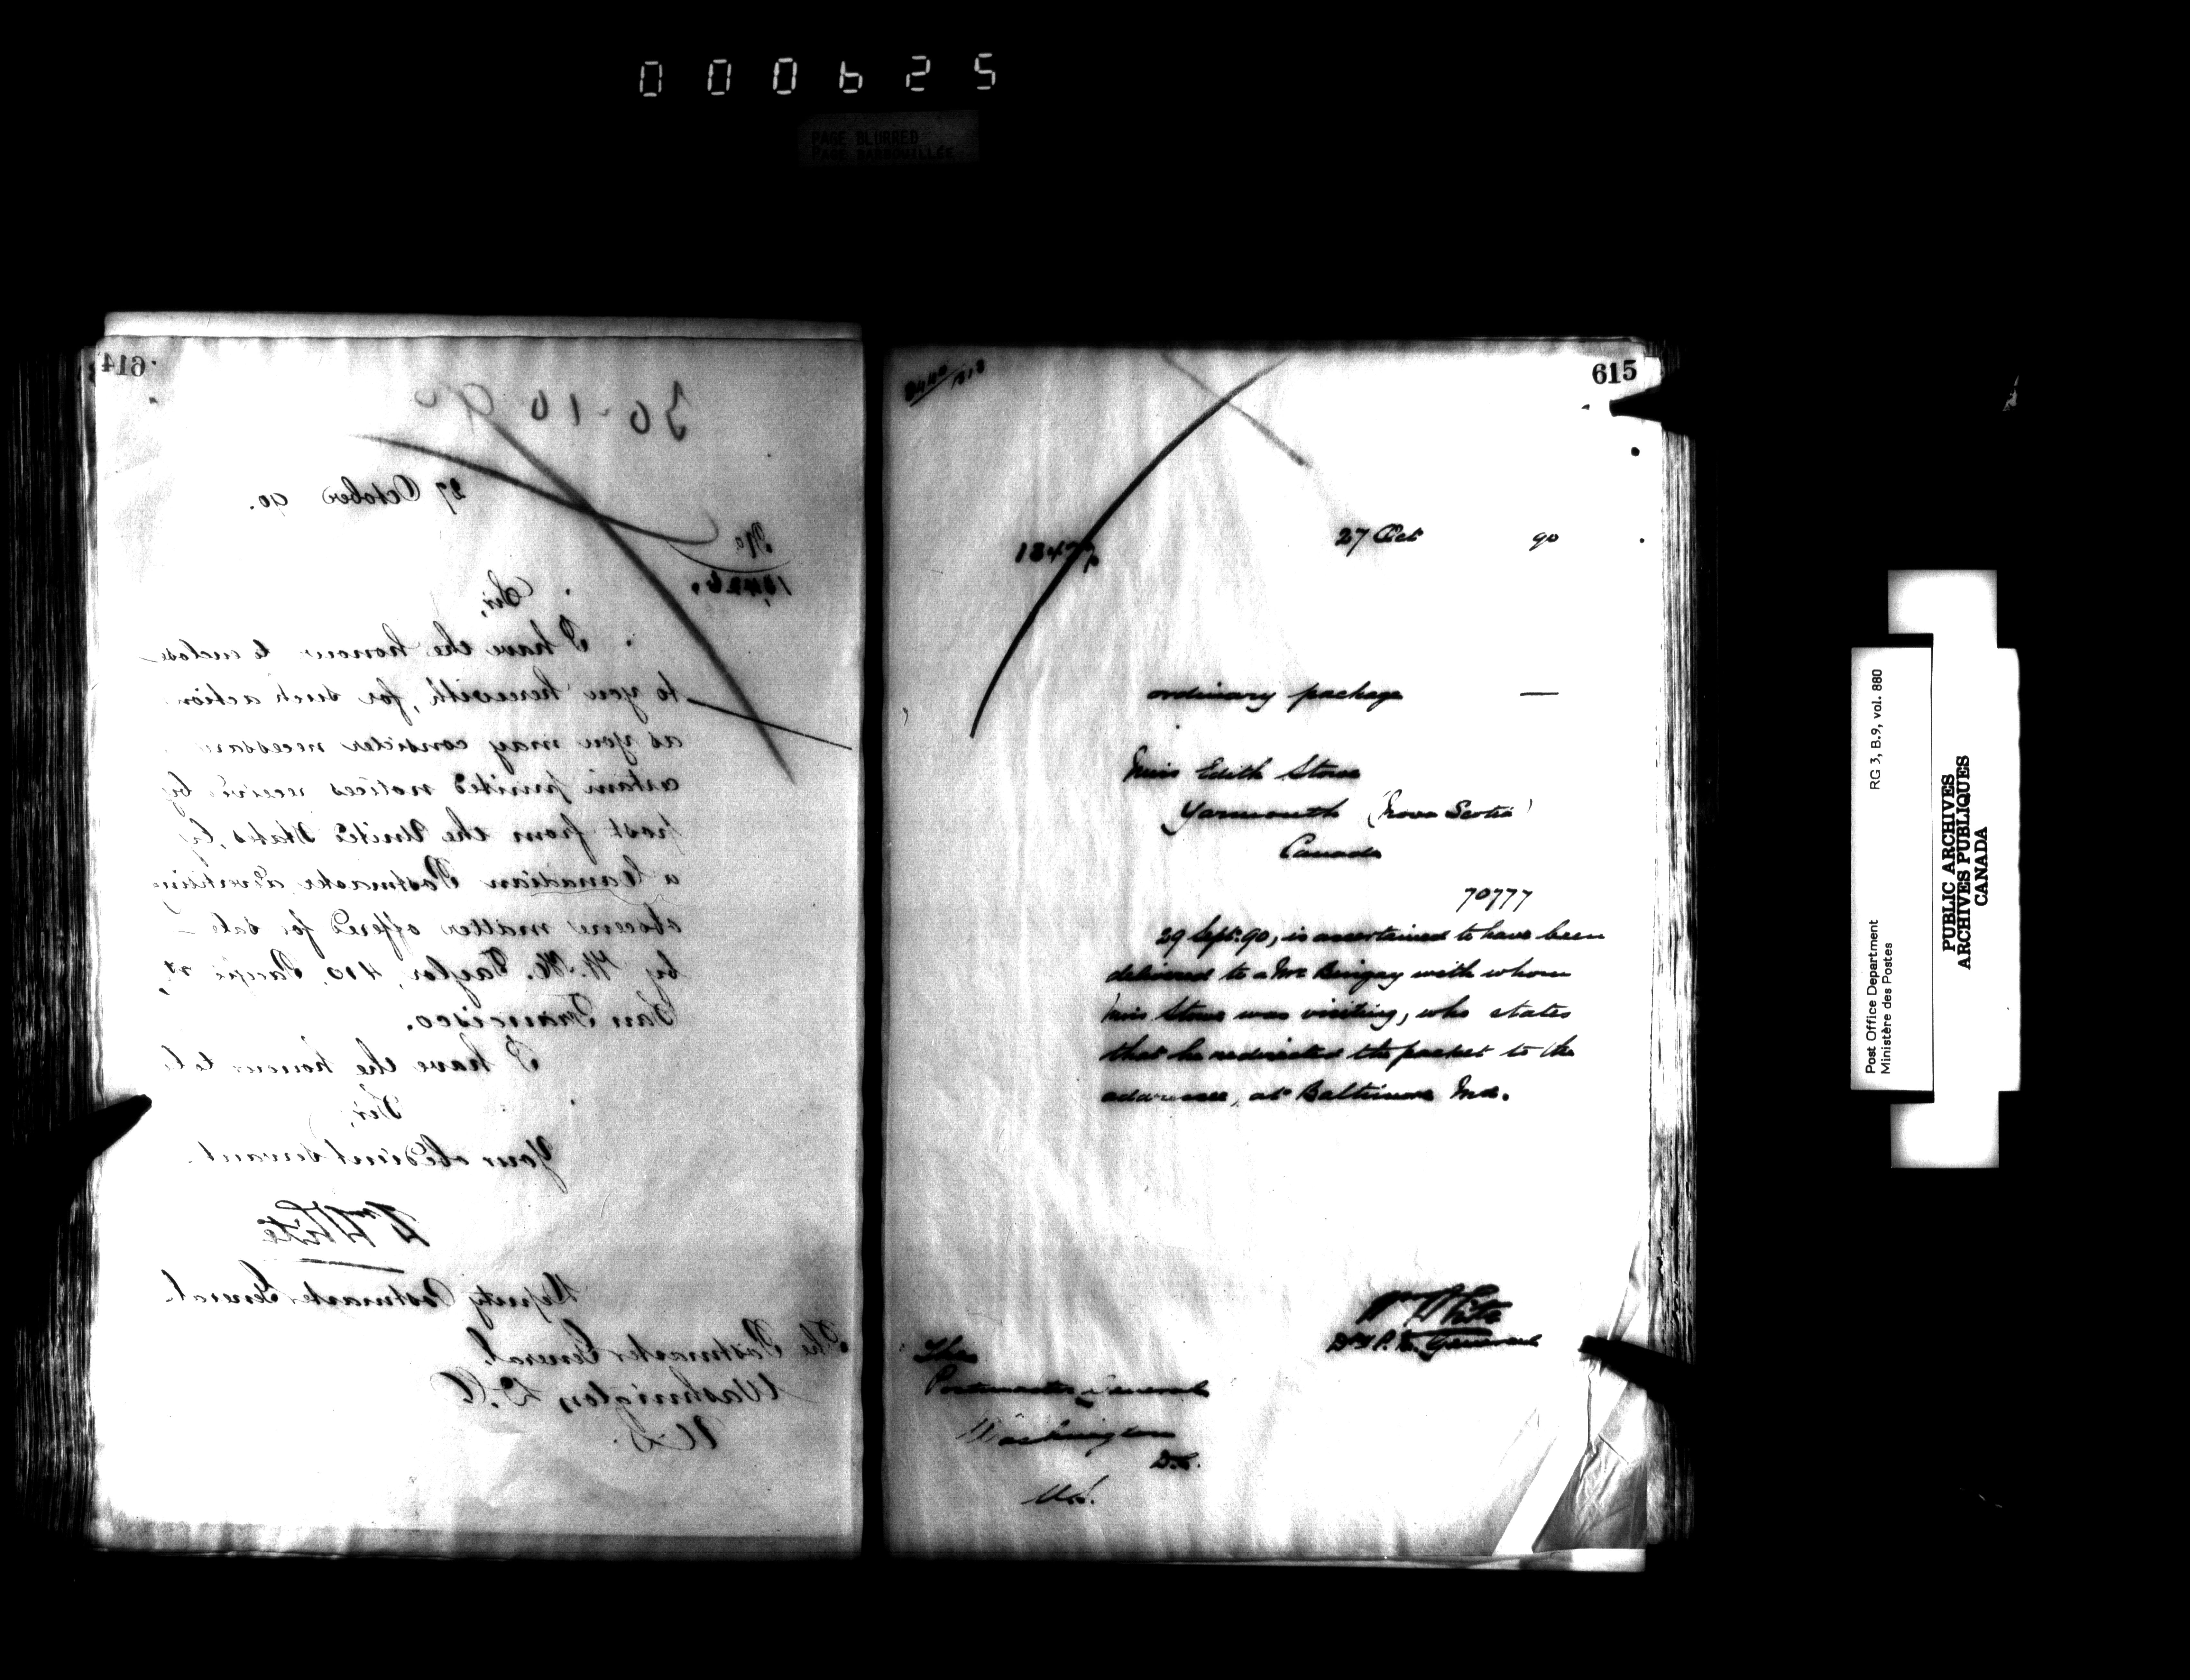 000625
PAGE BLURRED
PAGE BARBOUILLÉE
614
30-10 90
27 October 90.
No
Sir,
I have the honour to enclose
to you herewith, for such action
as you may consider necessary
certain printed notices received by
post from the United States, by
a Canadian Postmaster advertising
obscene matter offered for sale
by W. H. Taylor, 410, Pacific St,
San Francisco.
I have the honour to be
Sir,
Your obedient servant.
Wm White
Deputy Postmaster General.
The Postmaster General,
Washington D.C.
U.S.
615
27 Oct 90
ordinary package —
Miss Edith Stowe
Yarmouth (Nova Scotia)
Canada
70777
29 Sept. 90, is ascertained to have been
delivered to a Mr with whom
Miss Stowe was visiting, who states
that he redirected the packet to the
addressee, at Baltimore Md.
Wm White
Dy P. M. General
The
Postmaster General
Washington
D.C.
U.S.
Post Office Department
Ministère des Postes
RG 3, B.9, vol. 880
PUBLIC ARCHIVES
ARCHIVES PUBLIQUES
CANADA